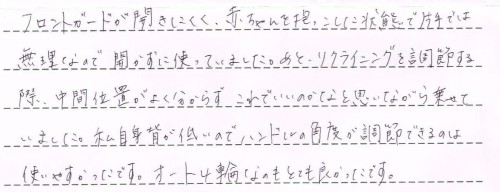 フロントガードが開きにくく、赤ちゃんを抱っこした状態で片手では
無理なので開かずに使っていました。あと、リクライニングを調節する
際、中間位置がよく分からずこれでいいのかなと思いながら乗せて
いました。私自身背が低いのでハンドルの角度が調節できるのは
使いやすかったです。オート4輪なのもとても良かったです。